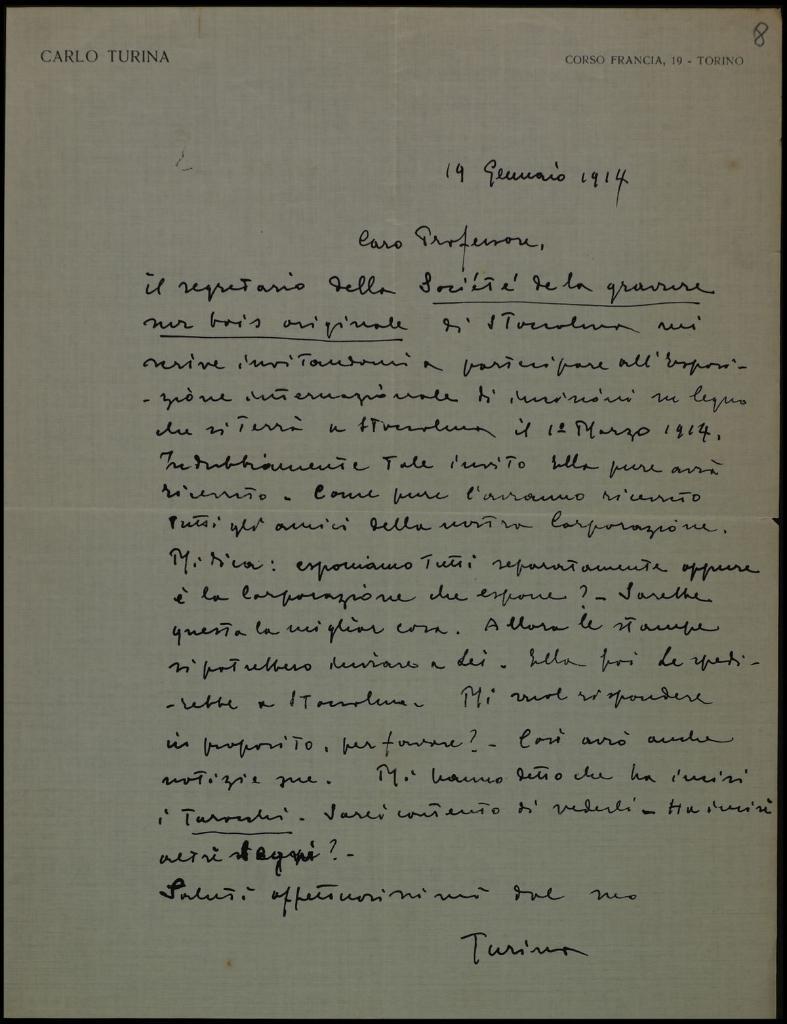 8
CARLO TURINA
CORSO FRANCIA, 19 - TORINO
19 Gennaio 1914
Caro Professore,
il segretario della Société de la gravure
sur bois originale di Stoccolma mi
scrive invitandomi a partecipare all'Esposi-
-zione internazionale di incisioni su legno
che si terrà a Stoccolma il 1º Marzo 1914.
Indubbiamente tale invito Ella pure avrà
ricevuto. Come pure l'avranno ricevuto
tutti gli amici della nostra Corporazione.
Mi dica: esponiamo tutti separatamente oppure
è la Corporazione che espone? - Sarebbe
questa la miglior cosa. Allora le stampe
si potrebbero inviare a Lei. Ella poi le spedi-
-rebbe a Stoccolma. Mi vuol rispondere
in proposito, per favore? - Così avrò anche
notizie sue. Mi hanno detto che ha incisi
i Tarocchi. Sarei contento di vederli - Ha incisi
altri legni? -
Saluti affettuosissimi dal suo
Turina